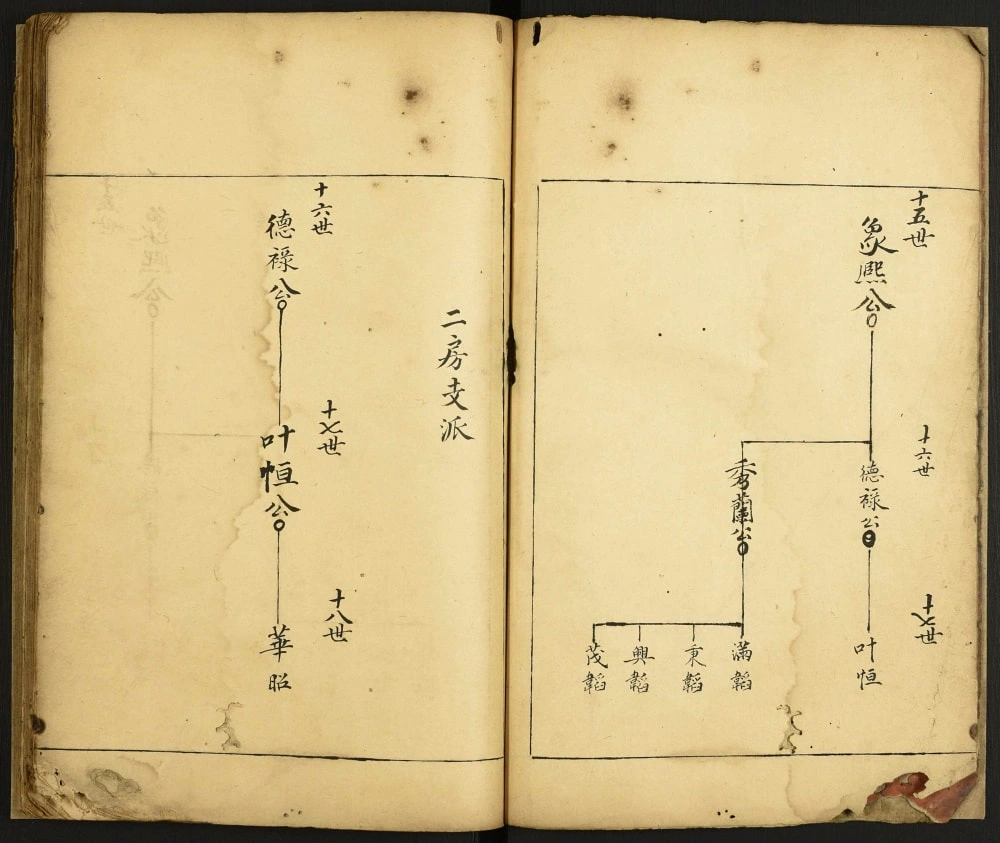 十五世
象熈公
十六世
德禄公
秀蘭公
十七世
叶恒
滿韜
秉韜
興韜
茂韜
二房支派
十六世
德禄公
十七世
叶恒公
十八世
華昭